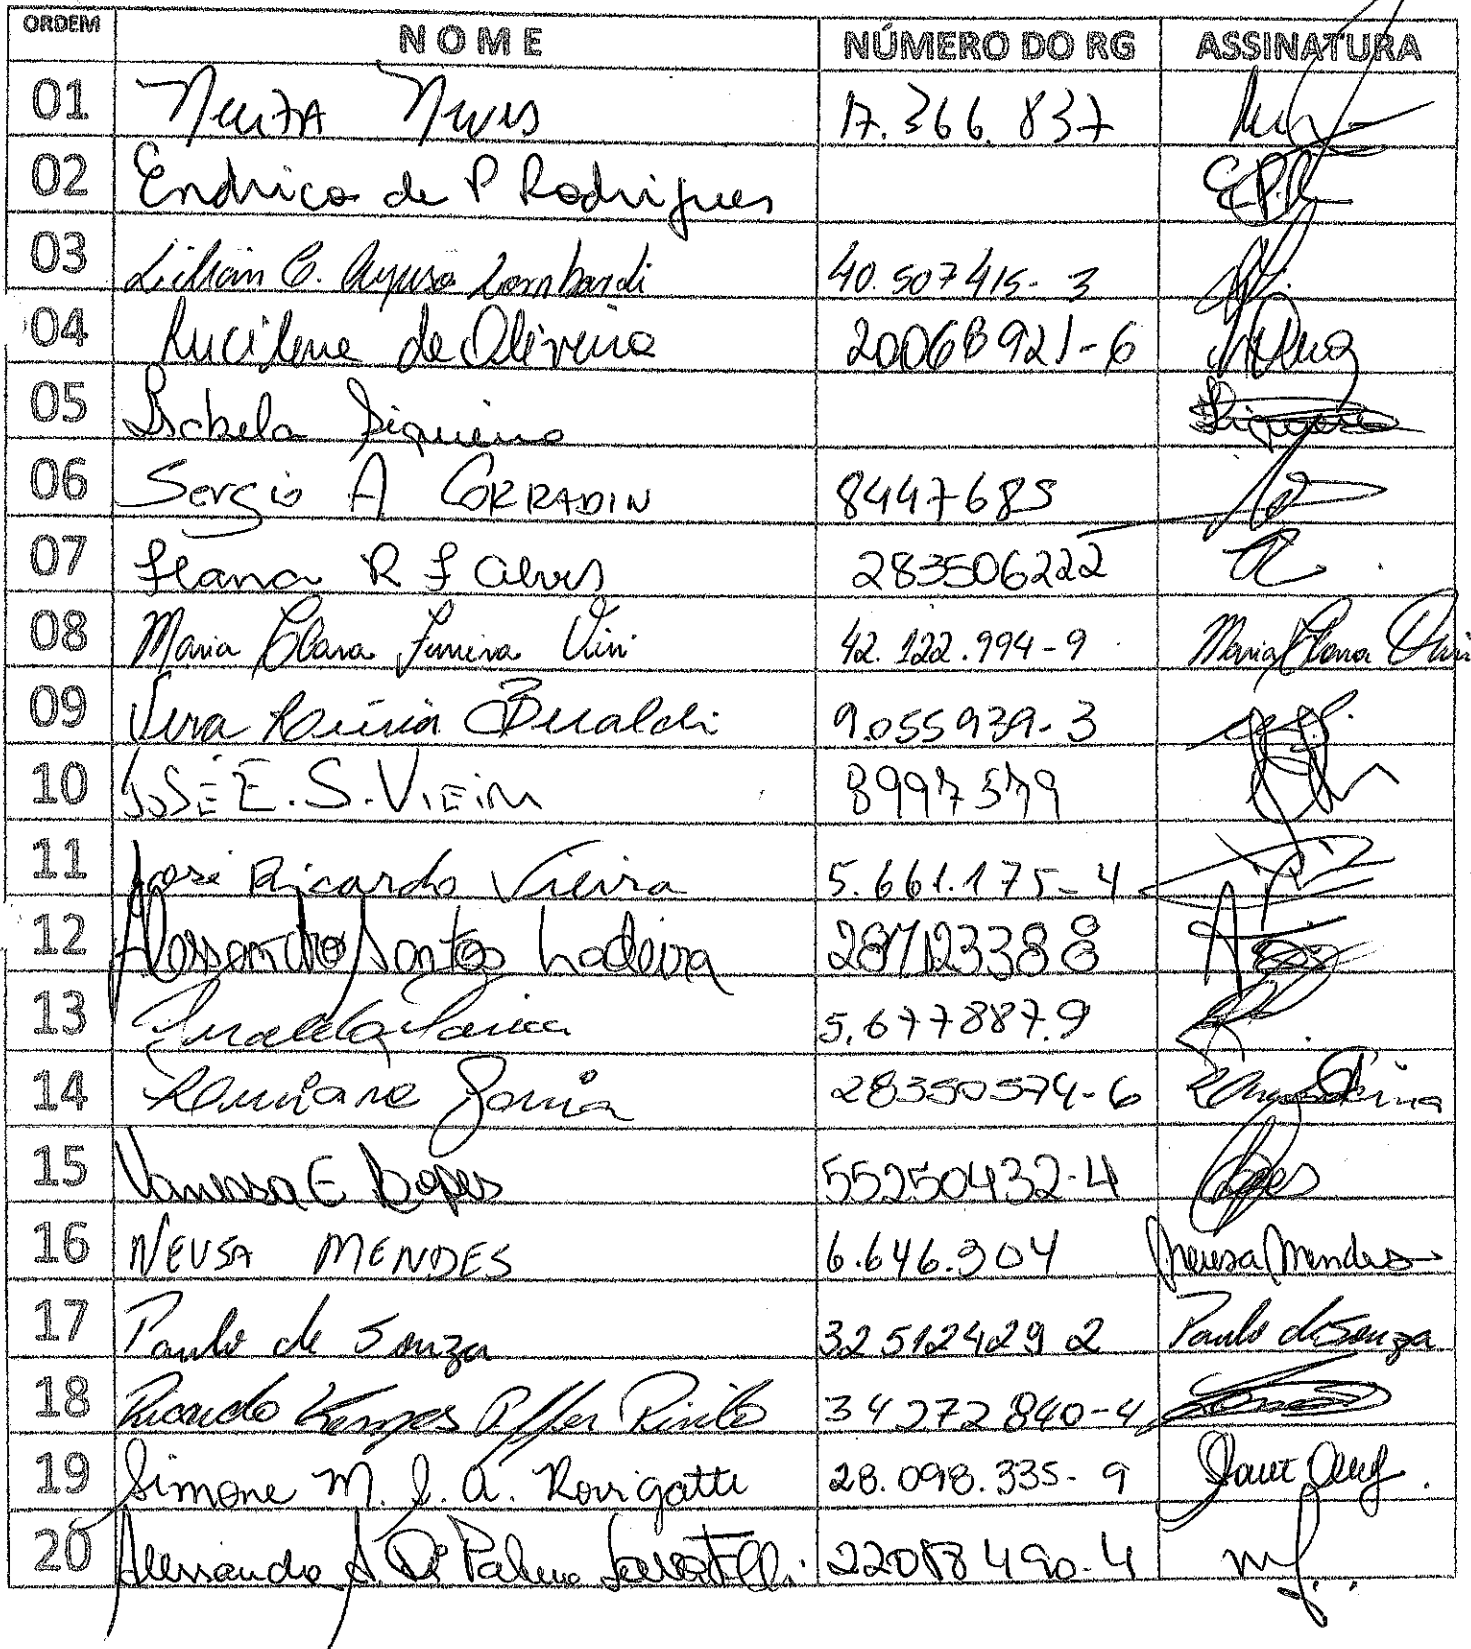 ORDEM NOME NÚMERO DO RG ASSINATURA
01 Neuza Neves 17.366.837
02 Endrica de P Rodrigues E.P.R
03 Lilian C. Lombardi 40.507415-3
04 Lucilene de Oliveira 20068921-6
05 Isabela Siqueira Siqueira
06 Sergio A CORRADIN 8447685
07 R F Alves 283506222
08 Maria Clara Ferreira Vivi 42.122.994-9 Maria Clara Vivi
09 Vera Lúcia Beraldi 9.055939-3
10 JOSÉ E. S. VIEIRA 8997579
11 José Ricardo Vieira 5.661.175-4
12 Alessandro Santos Ladeira 287123388
13 5.677887.9
14 28350574-6
15 Vanessa E Lopes 55250432-4 Lopes
16 NEUSA MENDES 6.646.304 Neusa Mendes
17 Paulo de Souza 32512429 2 Paulo de Souza
18 Ricardo 34272840-4
19 Simone M. J. A. Rovigatti 28.098.335-9
20 Alessandra A. Di 22088490-4